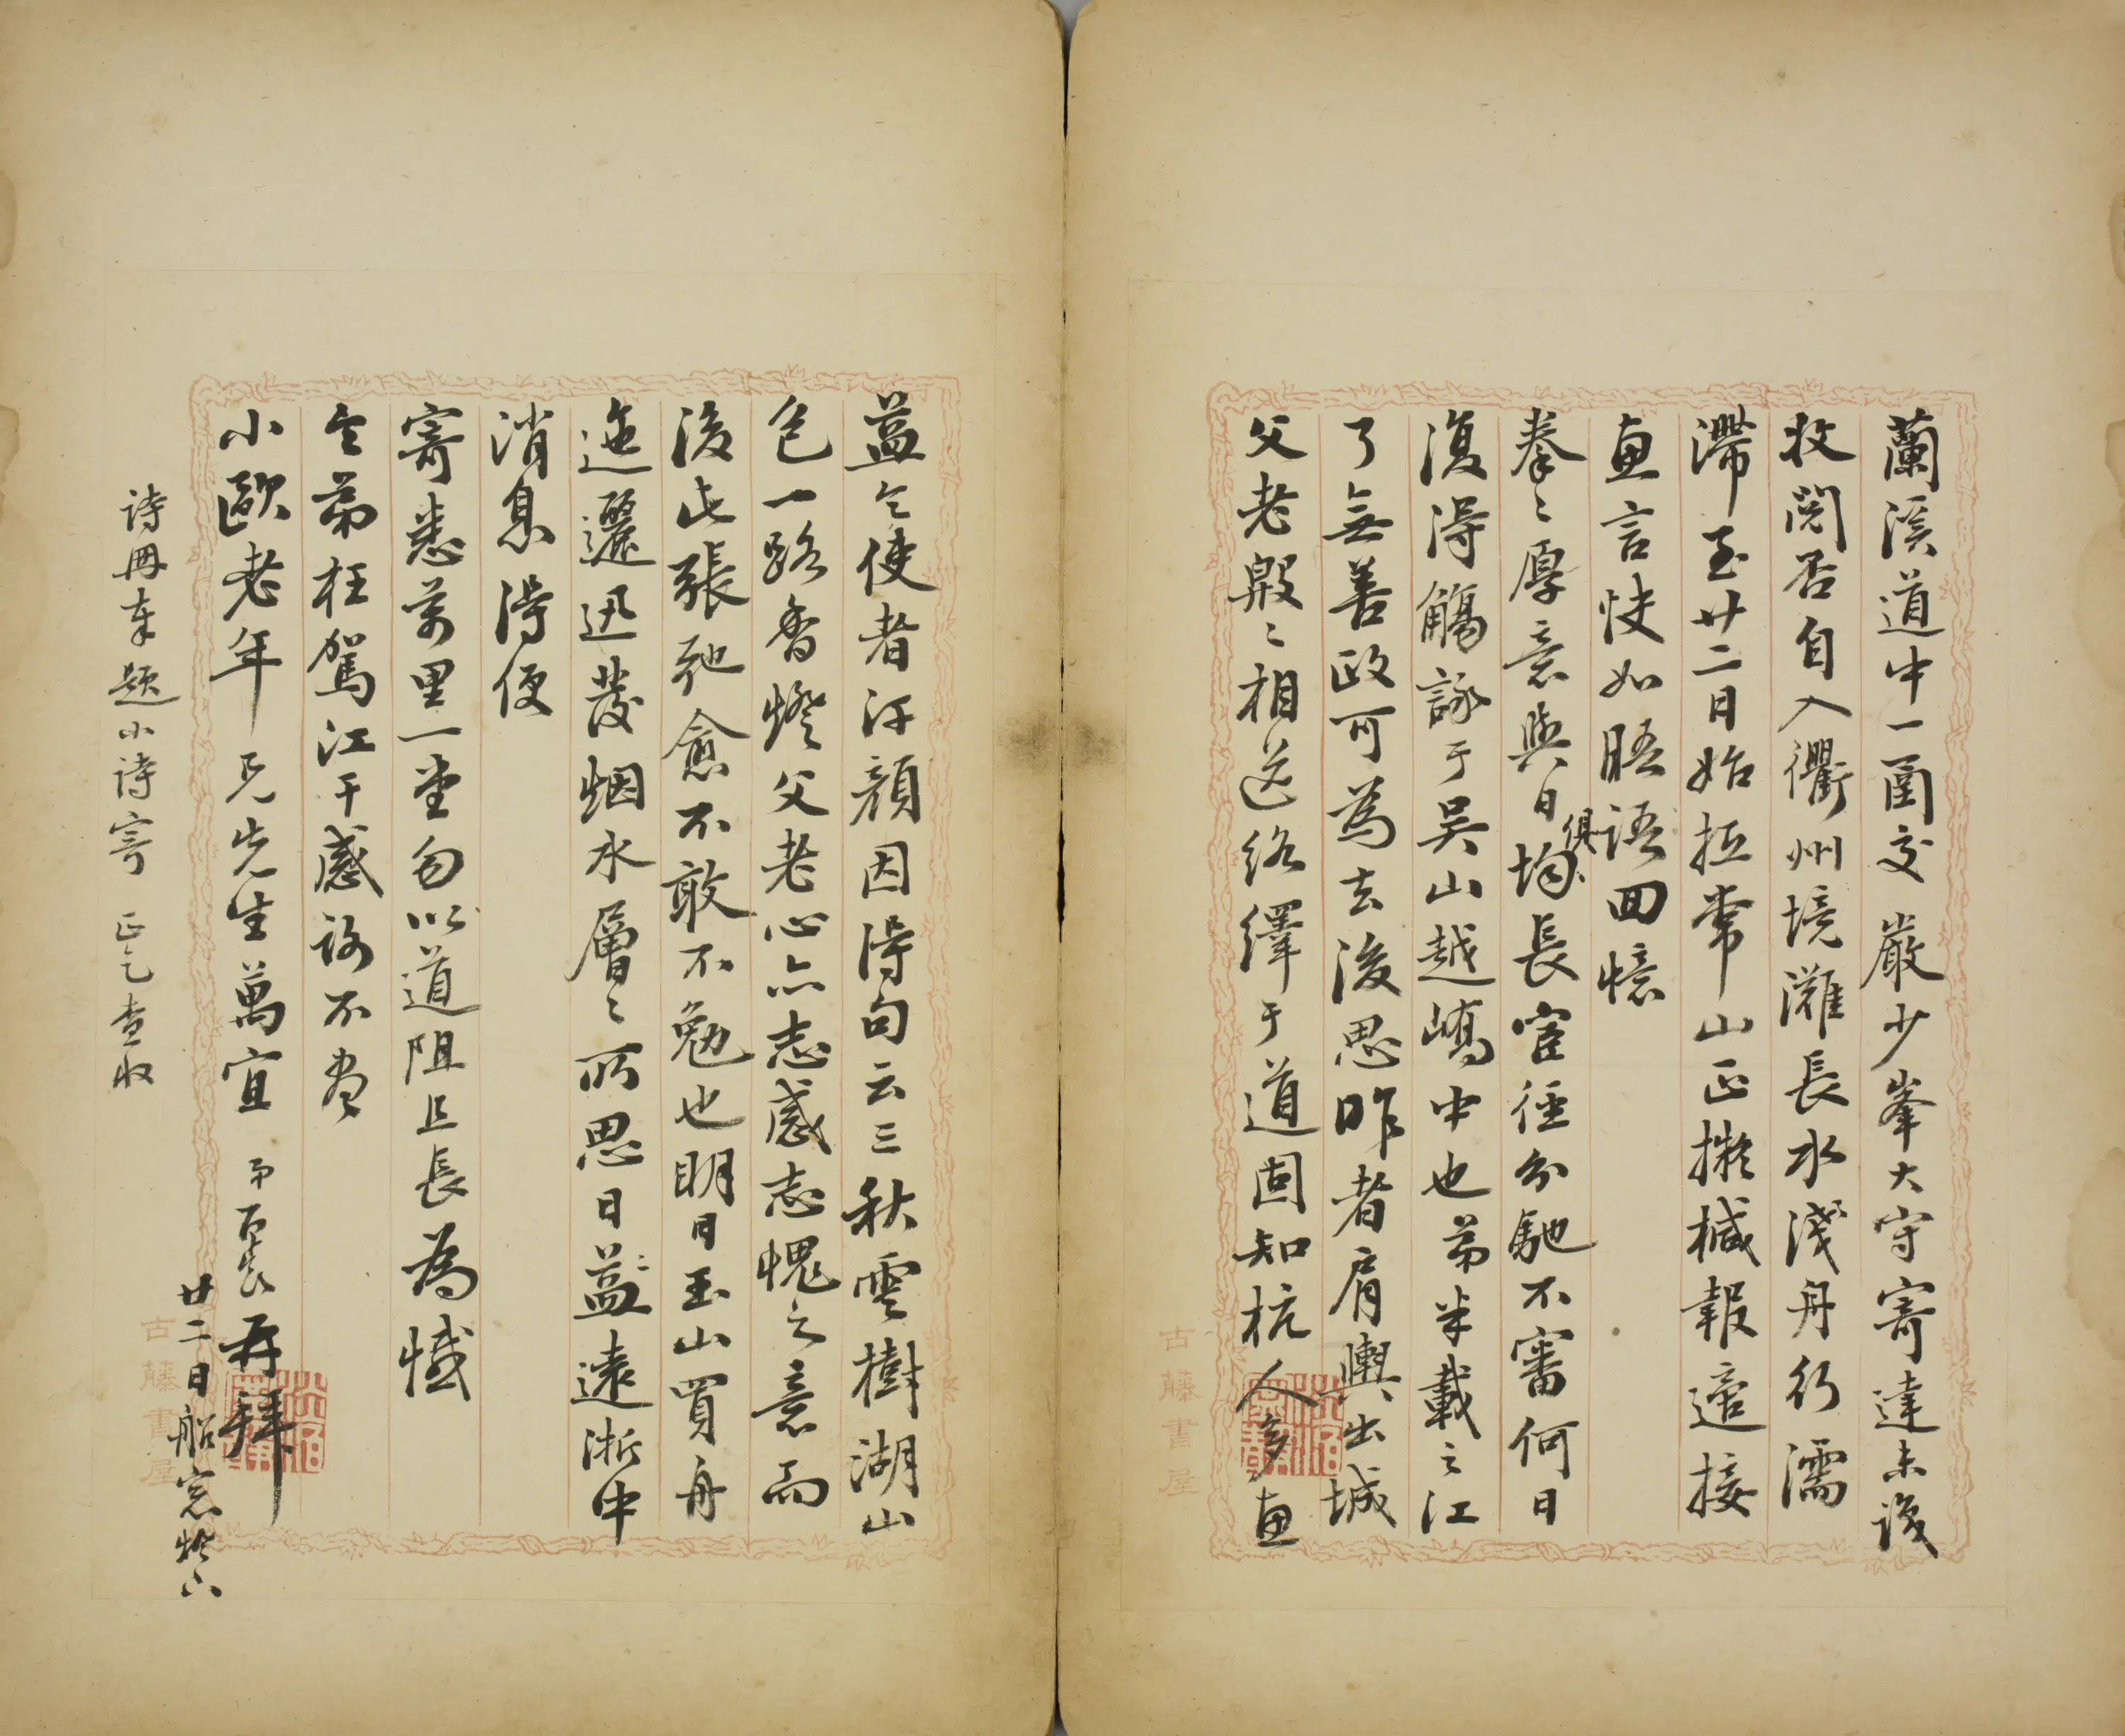 蘭溪道中一圅交 嚴少峯大守寄達未識
收閱否自入衢州境灘長水淺舟行濡
滯至廿二日始抵常山正擬椷報適接
惠言快如晤語回憶
拳〻厚意與日俱長宦徑分馳不審何日
復得觴詠于吳山越嶠中也弟半載之江
了無善政可為去後思昨者肩輿出城
父老殷〻相送絡繹于道固知杭人多惠
益令使者汗顏因得句云三秋雲樹湖山
色一路香燈父老心亦志感志愧之意而
後此張弛愈不敢不勉也明日玉山買舟
迤邐迅發烟水層〻所思日益遠浙中
消息得便
寄悉萬里一堂勿以道阻且長為憾
令弟枉駕江干感謝不盡
小歐老年兄先生萬宜 弟 再拜
廿二日船窓燈下
詩冊奉題小詩寄 正乞查收
古藤書屋
古藤書屋